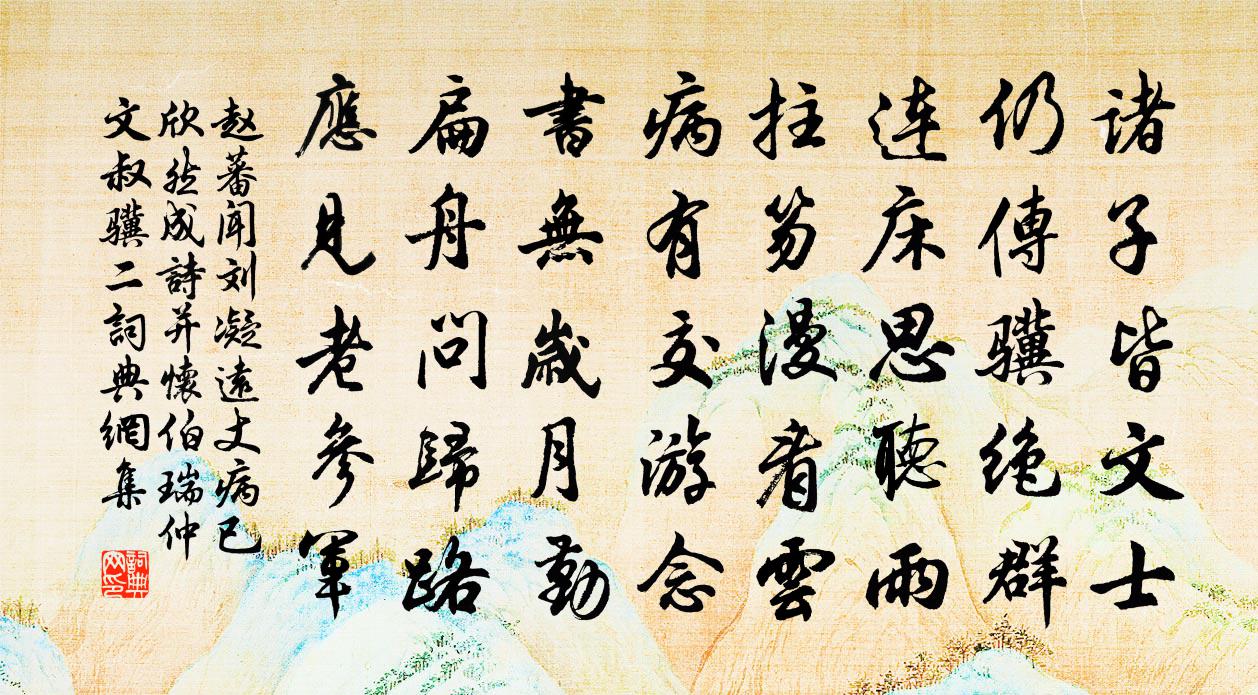 诸子皆文士
仍傳骥绝群
连床思聽雨
拄笏漫看雲
病有交游念
書無歲月勤
扁舟问歸路
應見老參军
赵蕃闻刘凝遠丈病已
欣然成詩并懷伯瑞仲
文叔骥二詞典網集
詞典网印